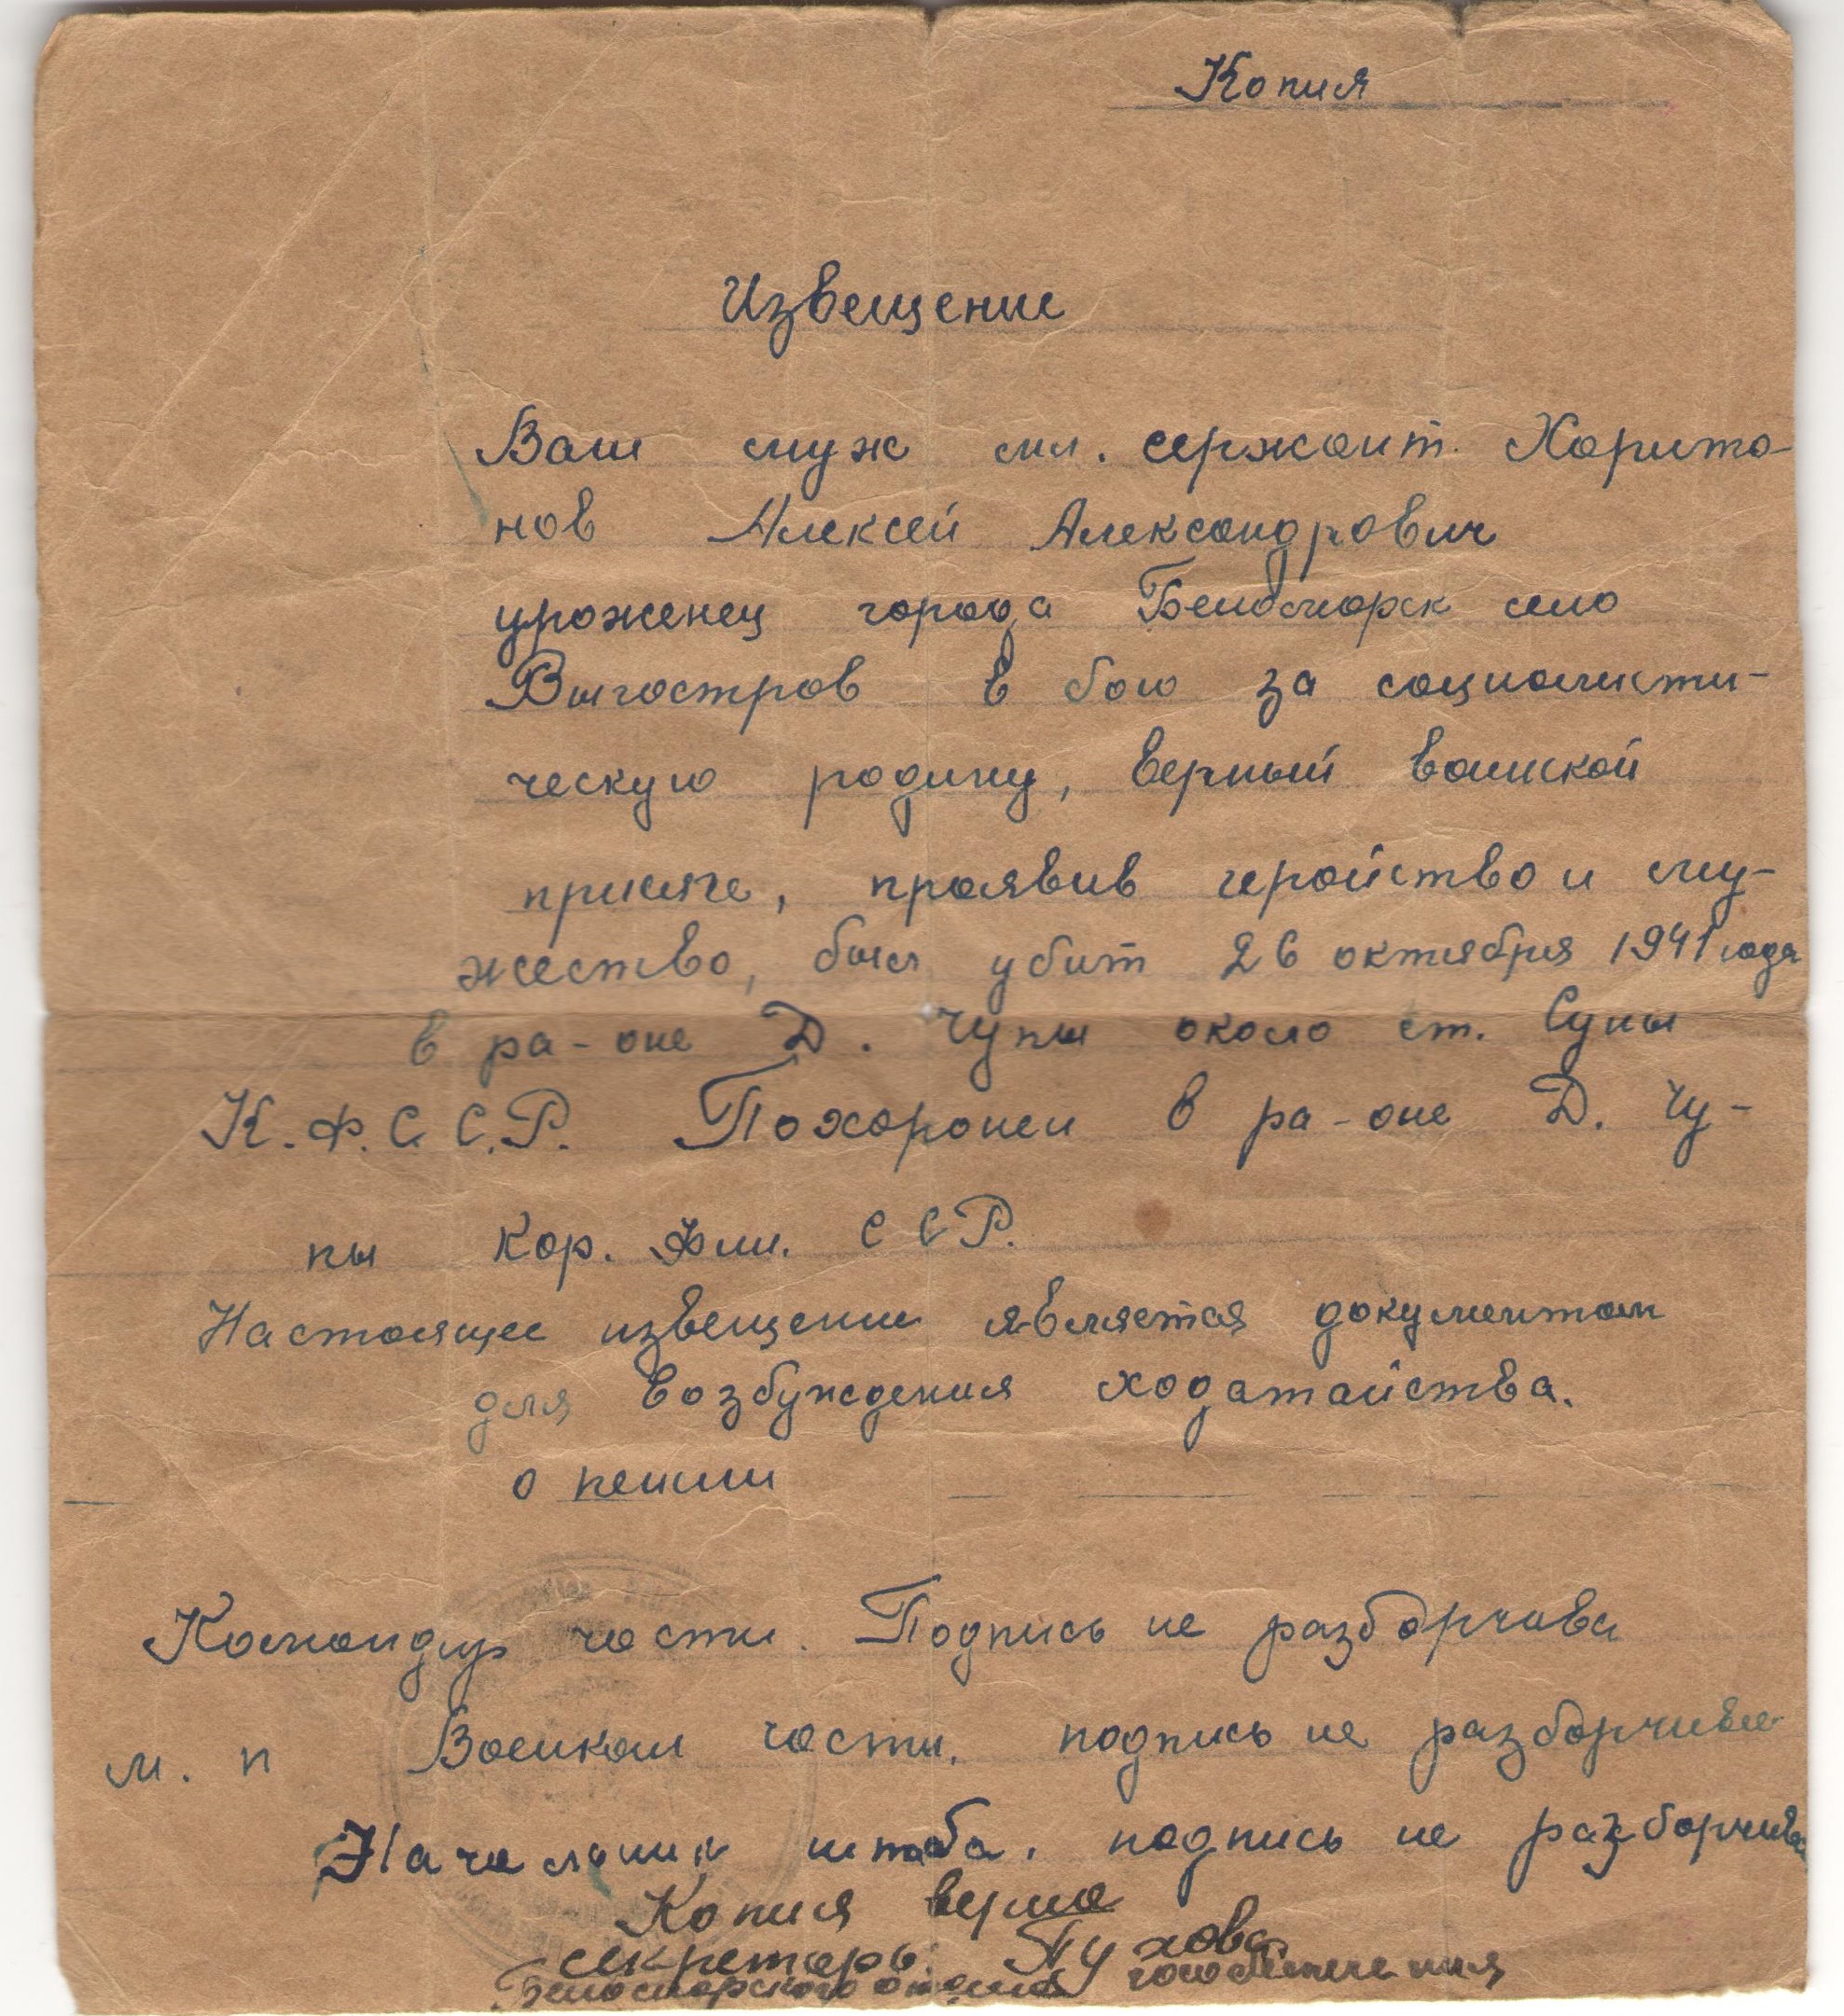 Копия
Извещение
Ваш муж мл. сержант. Харито-
нов Алексей Александрович
уроженец города Беломорск село
Выгостров в бою за социалисти-
ческую родину, верный воинской
присяге, проявив геройство и му-
жество, был убит 26 октября 1941 года
в ра-оне Д. Чупы около ст. Суны
К.Ф.С.С.Р. Похоронен в ра-оне Д. Чу-
пы Кар. Фин. ССР.
Настоящее извещение является документом
для возбуждения ходатайства.
о пенсии
Командир части. Подпись не разборчива
м. п Военком части. подпись не разборчива
Начальник штаба. подпись не разборчива
Копия верна
секретарь: Пухова
Беломорского отдела гособеспечения